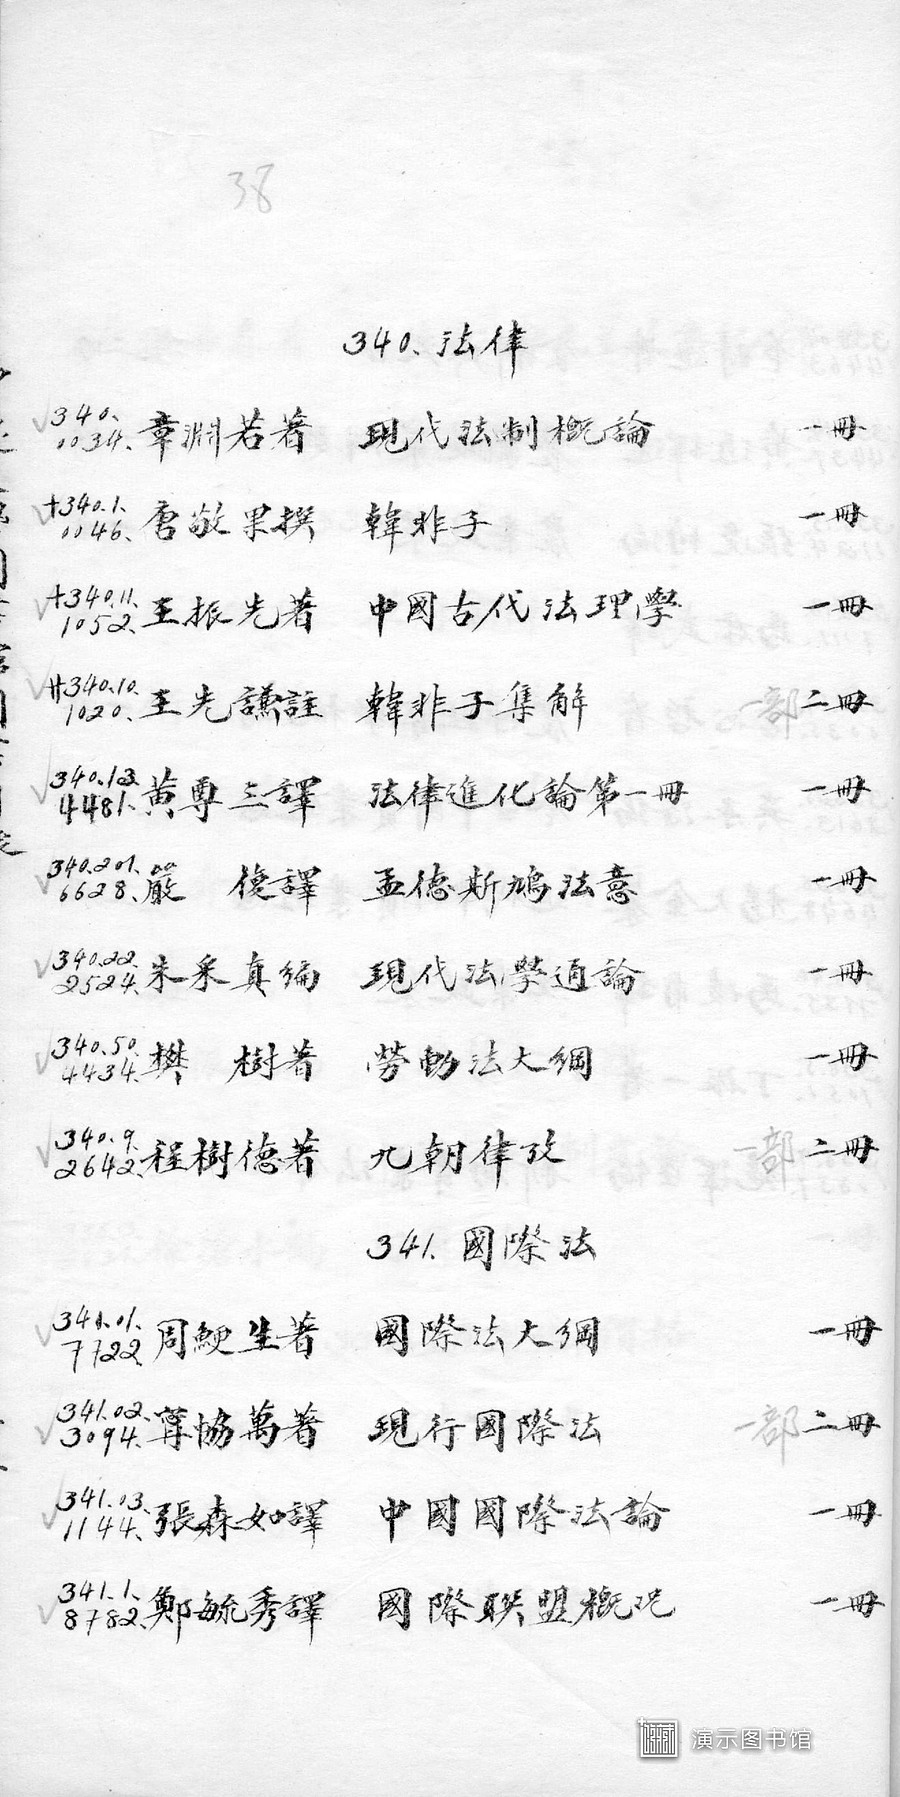 38
340. 法律
340.
0034. 章淵若著 現代法制概論 一冊
+340.1.
0046. 唐敬杲撰 韓非子 一冊
+340.11.
1052. 王振先著 中國古代法理學 一冊
卄340.10.
1020. 王先謙註 韓非子集解 一部二冊
340.13.
4481. 黃尊三譯 法律進化論第一冊 一冊
340.201.
6628. 嚴 復譯 孟德斯鳩法意 一冊
340.22.
2524. 朱采真編 現代法學通論 一冊
340.50.
4434. 樊 樹著 勞動法大綱 一冊
340.9.
2642. 程樹德著 九朝律攷 一部 二冊
341. 國際法
341.01.
7722. 周鯁生著 國際法大綱 一冊
341.02.
3094. 協萬著 現行國際法 一部二冊
341.03.
1144. 張森如譯 中國國際法論 一冊
341.1.
8782. 鄭毓秀譯 國際聯盟概況 一冊
演示图书馆